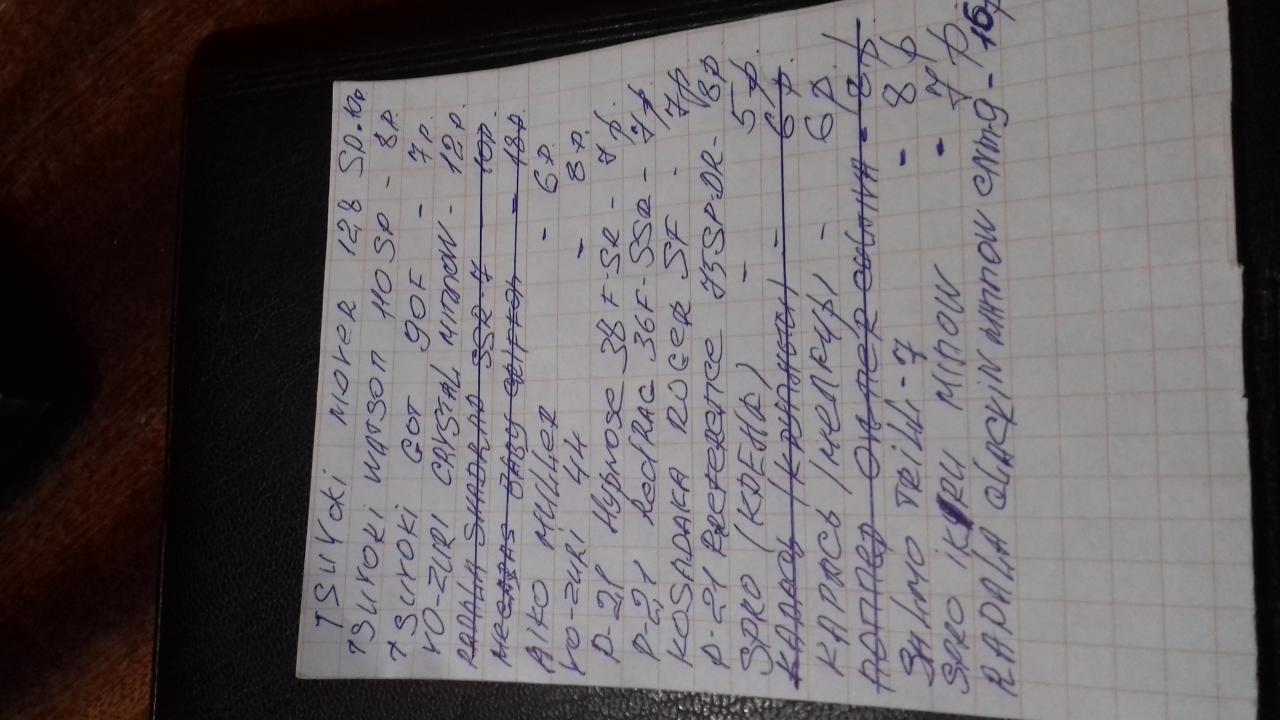 TSUYOKI MOVER 128 SP. 10р.
TSUYOKI WATSON 110SP - 8р.
TSUYOKI GOT 90F - 7р.
YO-ZURI CRYSTAL MINNOW - 12р.
RAPALA SHADRAP SSR-7 - 10р.
MEGABASS BABY GRIFFON - 18р.
AIKO MULLER - 6р.
YO-ZURI 4H - 8р.
P-21 Hypnose 38F-SR - 7р.
P-21 RedRAG 36F-SSR - 7р.
KOSADAKA ROGER SF - 7р
P-21 PREFERENCE 75SP-DR - 8р
SPRO (КРЕНК) - 5р.
КАРАСЬ (КРУПНЫЙ) - 6р.
КАРАСЬ (МЕЛКИЙ) - 6р
ПОППЕР - 8р
SALMO TRILL-7 - 8р
SPRO IKIRU MINOW - 7р
RAPALA CNM-9 - 16р